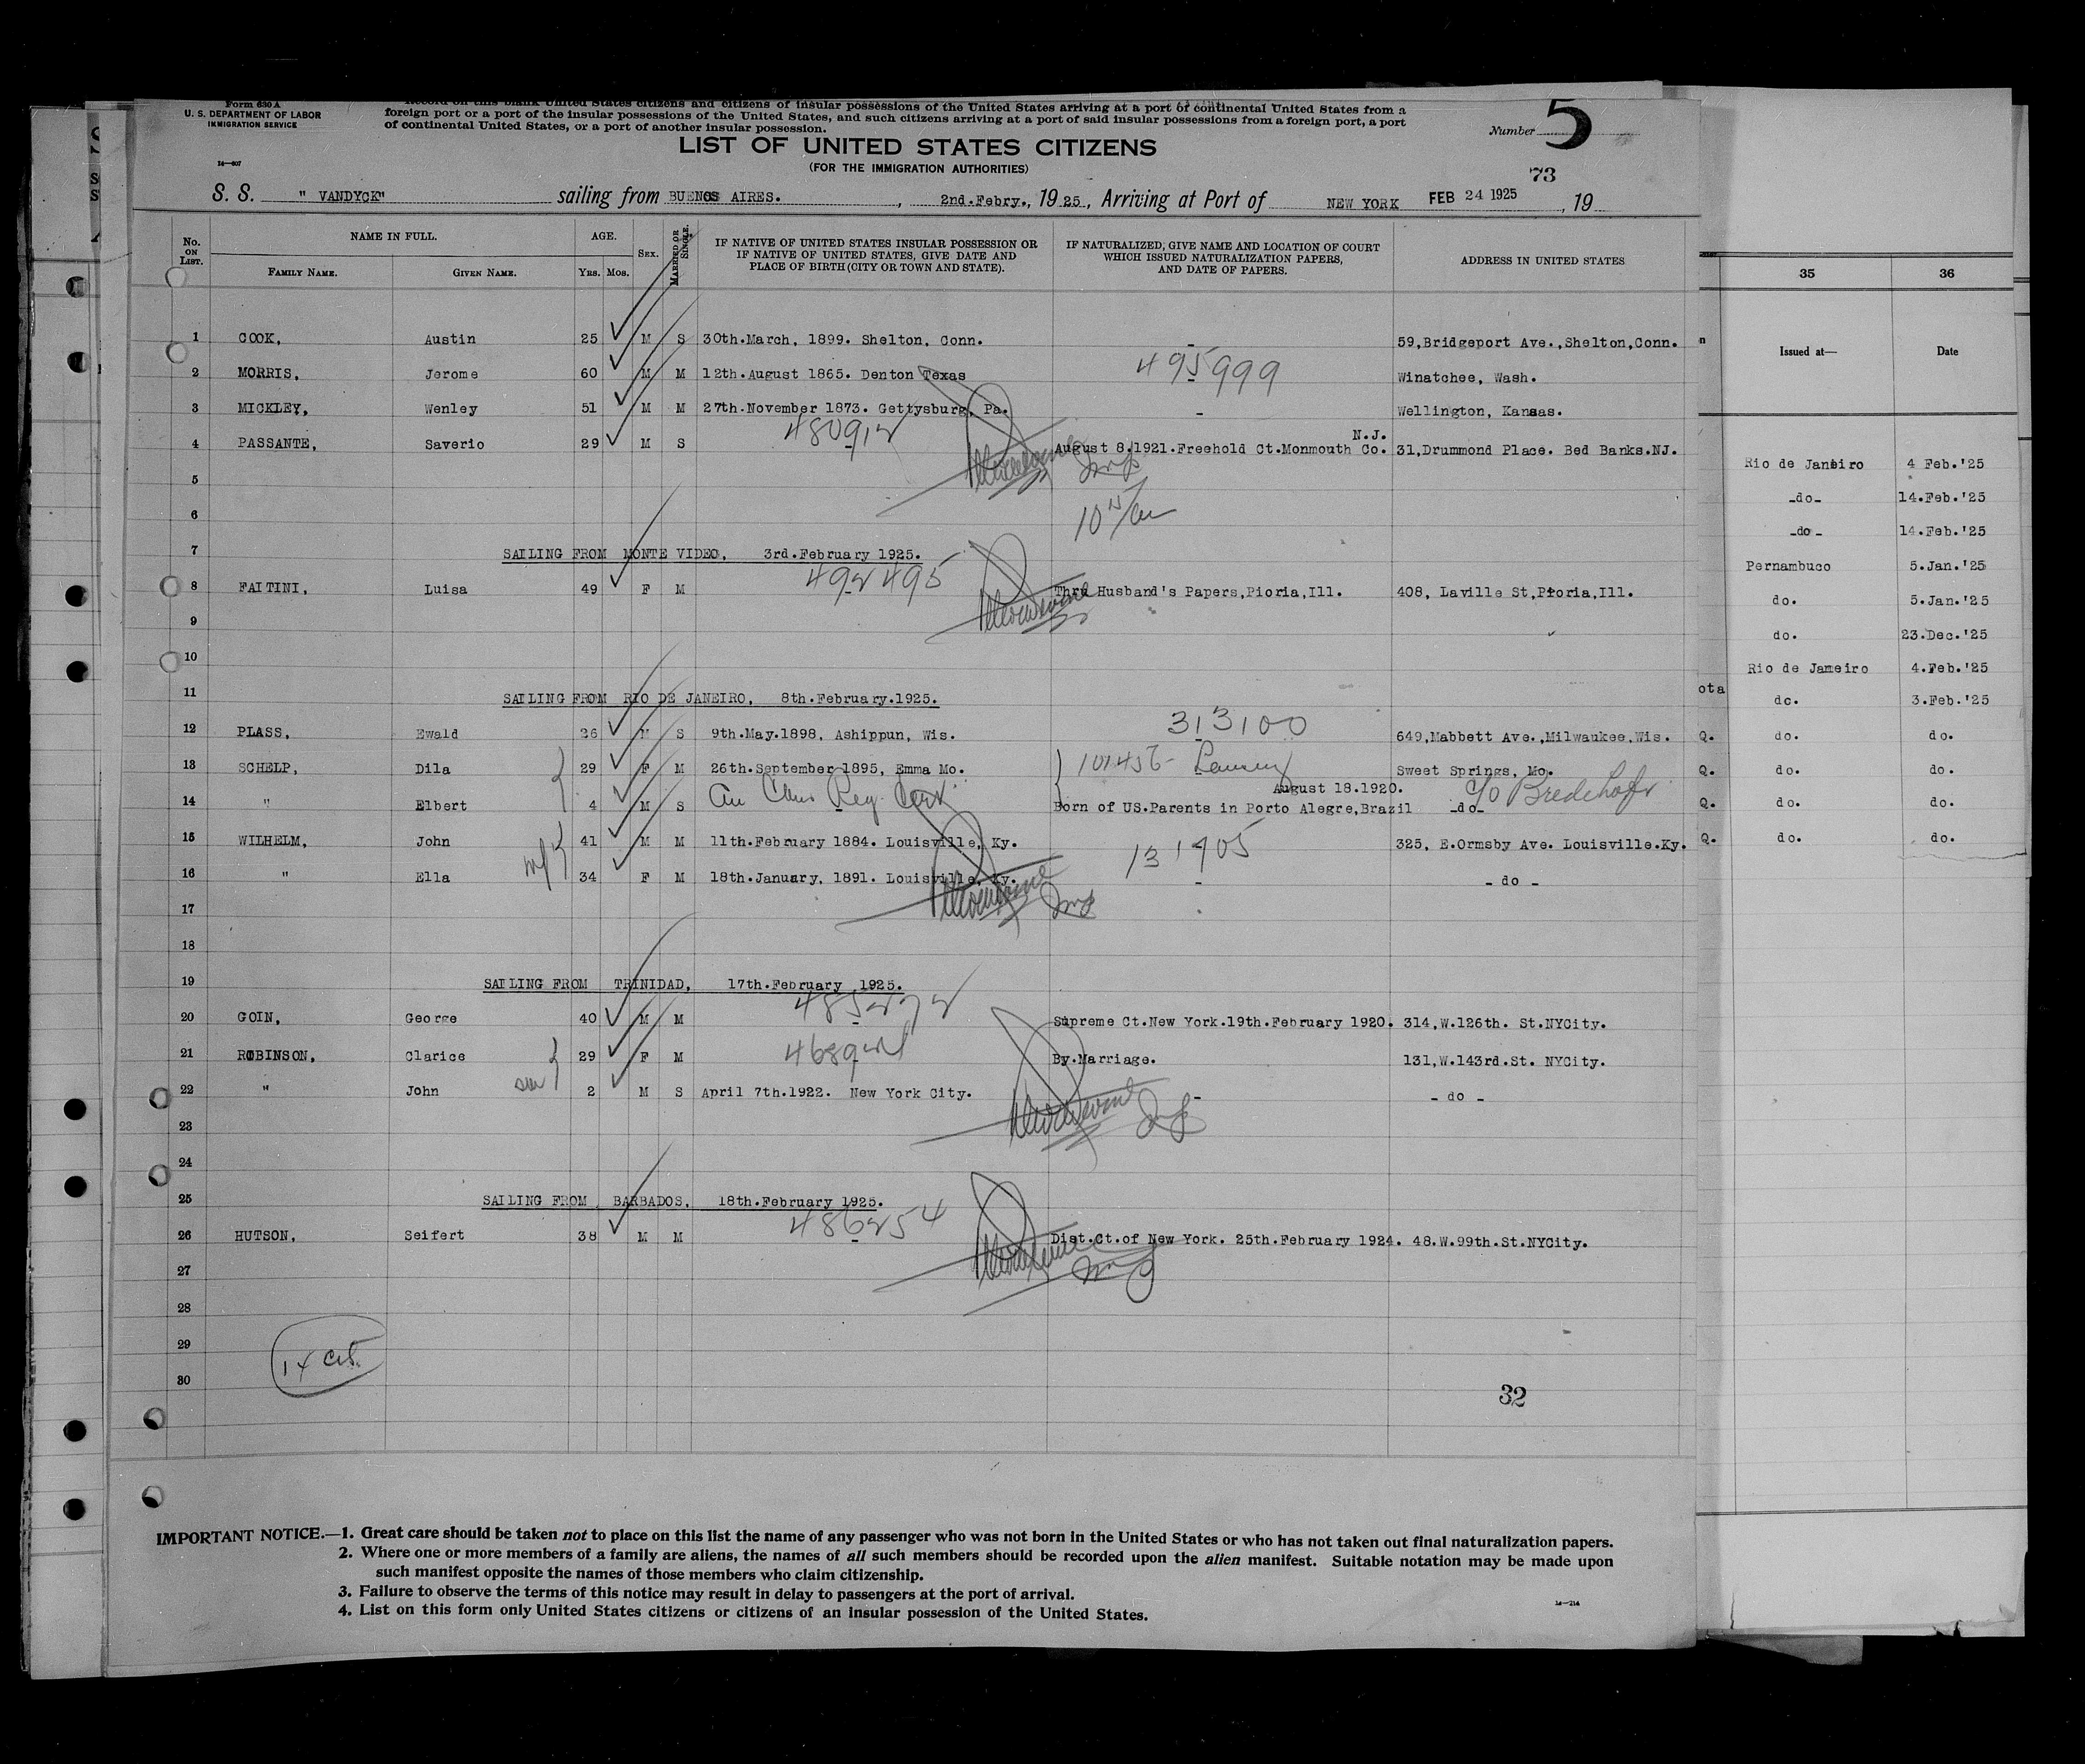 Form 630 A
U. S. DEPARTMENT OF LABOR
IMMIGRATION SERVICE
14—607
Record on this blank United States citizens and citizens of insular possessions of the United States arriving at a port of continental United States from a
foreign port or a port of the insular possessions of the United States, and such citizens arriving at a port of said insular possessions from a foreign port, a port
of continental United States, or a port of another insular possession.
Number 5
LIST OF UNITED STATES CITIZENS
(FOR THE IMMIGRATION AUTHORITIES)
73
S. S. " VANDYCK" sailing from BUENOS AIRES. , 2nd.Febry., 1925, Arriving at Port of NEW YORK FEB 24 1925 , 19
No. ON LIST. NAME IN FULL. FAMILY NAME. GIVEN NAME. AGE. YRS. MOS. SEX. MARRIED OR SINGLE.
IF NATIVE OF UNITED STATES INSULAR POSSESSION OR
IF NATIVE OF UNITED STATES, GIVE DATE AND
PLACE OF BIRTH (CITY OR TOWN AND STATE).
IF NATURALIZED, GIVE NAME AND LOCATION OF COURT
WHICH ISSUED NATURALIZATION PAPERS,
AND DATE OF PAPERS.
ADDRESS IN UNITED STATES
1 COOK, Austin 25 M S 30th.March, 1899. Shelton, Conn. - 59,Bridgeport Ave.,Shelton,Conn.
2 MORRIS, Jerome 60 M M 12th.August 1865. Denton Texas 495999 - Winatchee, Wash.
3 MICKLEY, Wenley 51 M M 27th.November 1873. Gettysburg, Pa. - Wellington, Kansas.
480912
N.J.
4 PASSANTE, Saverio 29 M S - August 8.1921.Freehold Ct.Monmouth Co. 31,Drummond Place. Bed Banks.NJ.
5
6
7 SAILING FROM MONTE VIDEO, 3rd.February 1925.
492495
8 FAITINI, Luisa 49 F M - Thru Husband's Papers,Pioria,Ill. 408, Laville St,Pioria,Ill.
9
10
11 SAILING FROM RIO DE JANEIRO, 8th.February.1925.
12 PLASS, Ewald 26 M S 9th.May.1898, Ashippun, Wis. 313100 - 649,Mabbett Ave.,Milwaukee,Wis.
13 SCHELP, Dila 29 F M 26th.September 1895, Emma Mo. 101456- Sweet Springs, Mo.
August 18.1920. c/o Bredehoft
14 " Elbert 4 M S Born of US.Parents in Porto Alegre,Brazil -do-
15 WILHELM, John 41 M M 11th.February 1884. Louisville, Ky. 131905 325, E.Ormsby Ave. Louisville.Ky.
wf
16 " Ella 34 F M 18th.January, 1891. Louisville, Ky. - - do -
17
18
19 SAILING FROM TRINIDAD, 17th.February 1925.
485272
20 GOIN, George 40 M M - Supreme Ct.New York.19th.February 1920. 314,W.126th. St.NYCity.
21 ROBINSON, Clarice 29 F M By.Marriage. 131,W.143rd.St. NYCity.
son
22 " John 2 M S April 7th.1922. New York City. - - do -
23
24
25 SAILING FROM BARBADOS, 18th.February 1925.
486254
26 HUTSON, Seifert 38 M M - Dist.Ct.of New York. 25th.February 1924. 48.W.99th.St.NYCity.
27
28
29
14 cit.
30
32
IMPORTANT NOTICE.—1. Great care should be taken not to place on this list the name of any passenger who was not born in the United States or who has not taken out final naturalization papers.
2. Where one or more members of a family are aliens, the names of all such members should be recorded upon the alien manifest. Suitable notation may be made upon
such manifest opposite the names of those members who claim citizenship.
3. Failure to observe the terms of this notice may result in delay to passengers at the port of arrival.
4. List on this form only United States citizens or citizens of an insular possession of the United States.
14—214
35 36
Issued at— Date
Rio de Janeiro 4 Feb.'25
-do- 14.Feb.'25
-do- 14.Feb.'25
Pernambuco 5.Jan.'25
do. 5.Jan.'25
do. 23.Dec.'25
Rio de Jameiro 4.Feb.'25
ota do. 3.Feb.'25
Q. do. do.
Q. do. do.
Q. do. do.
Q. do. do.